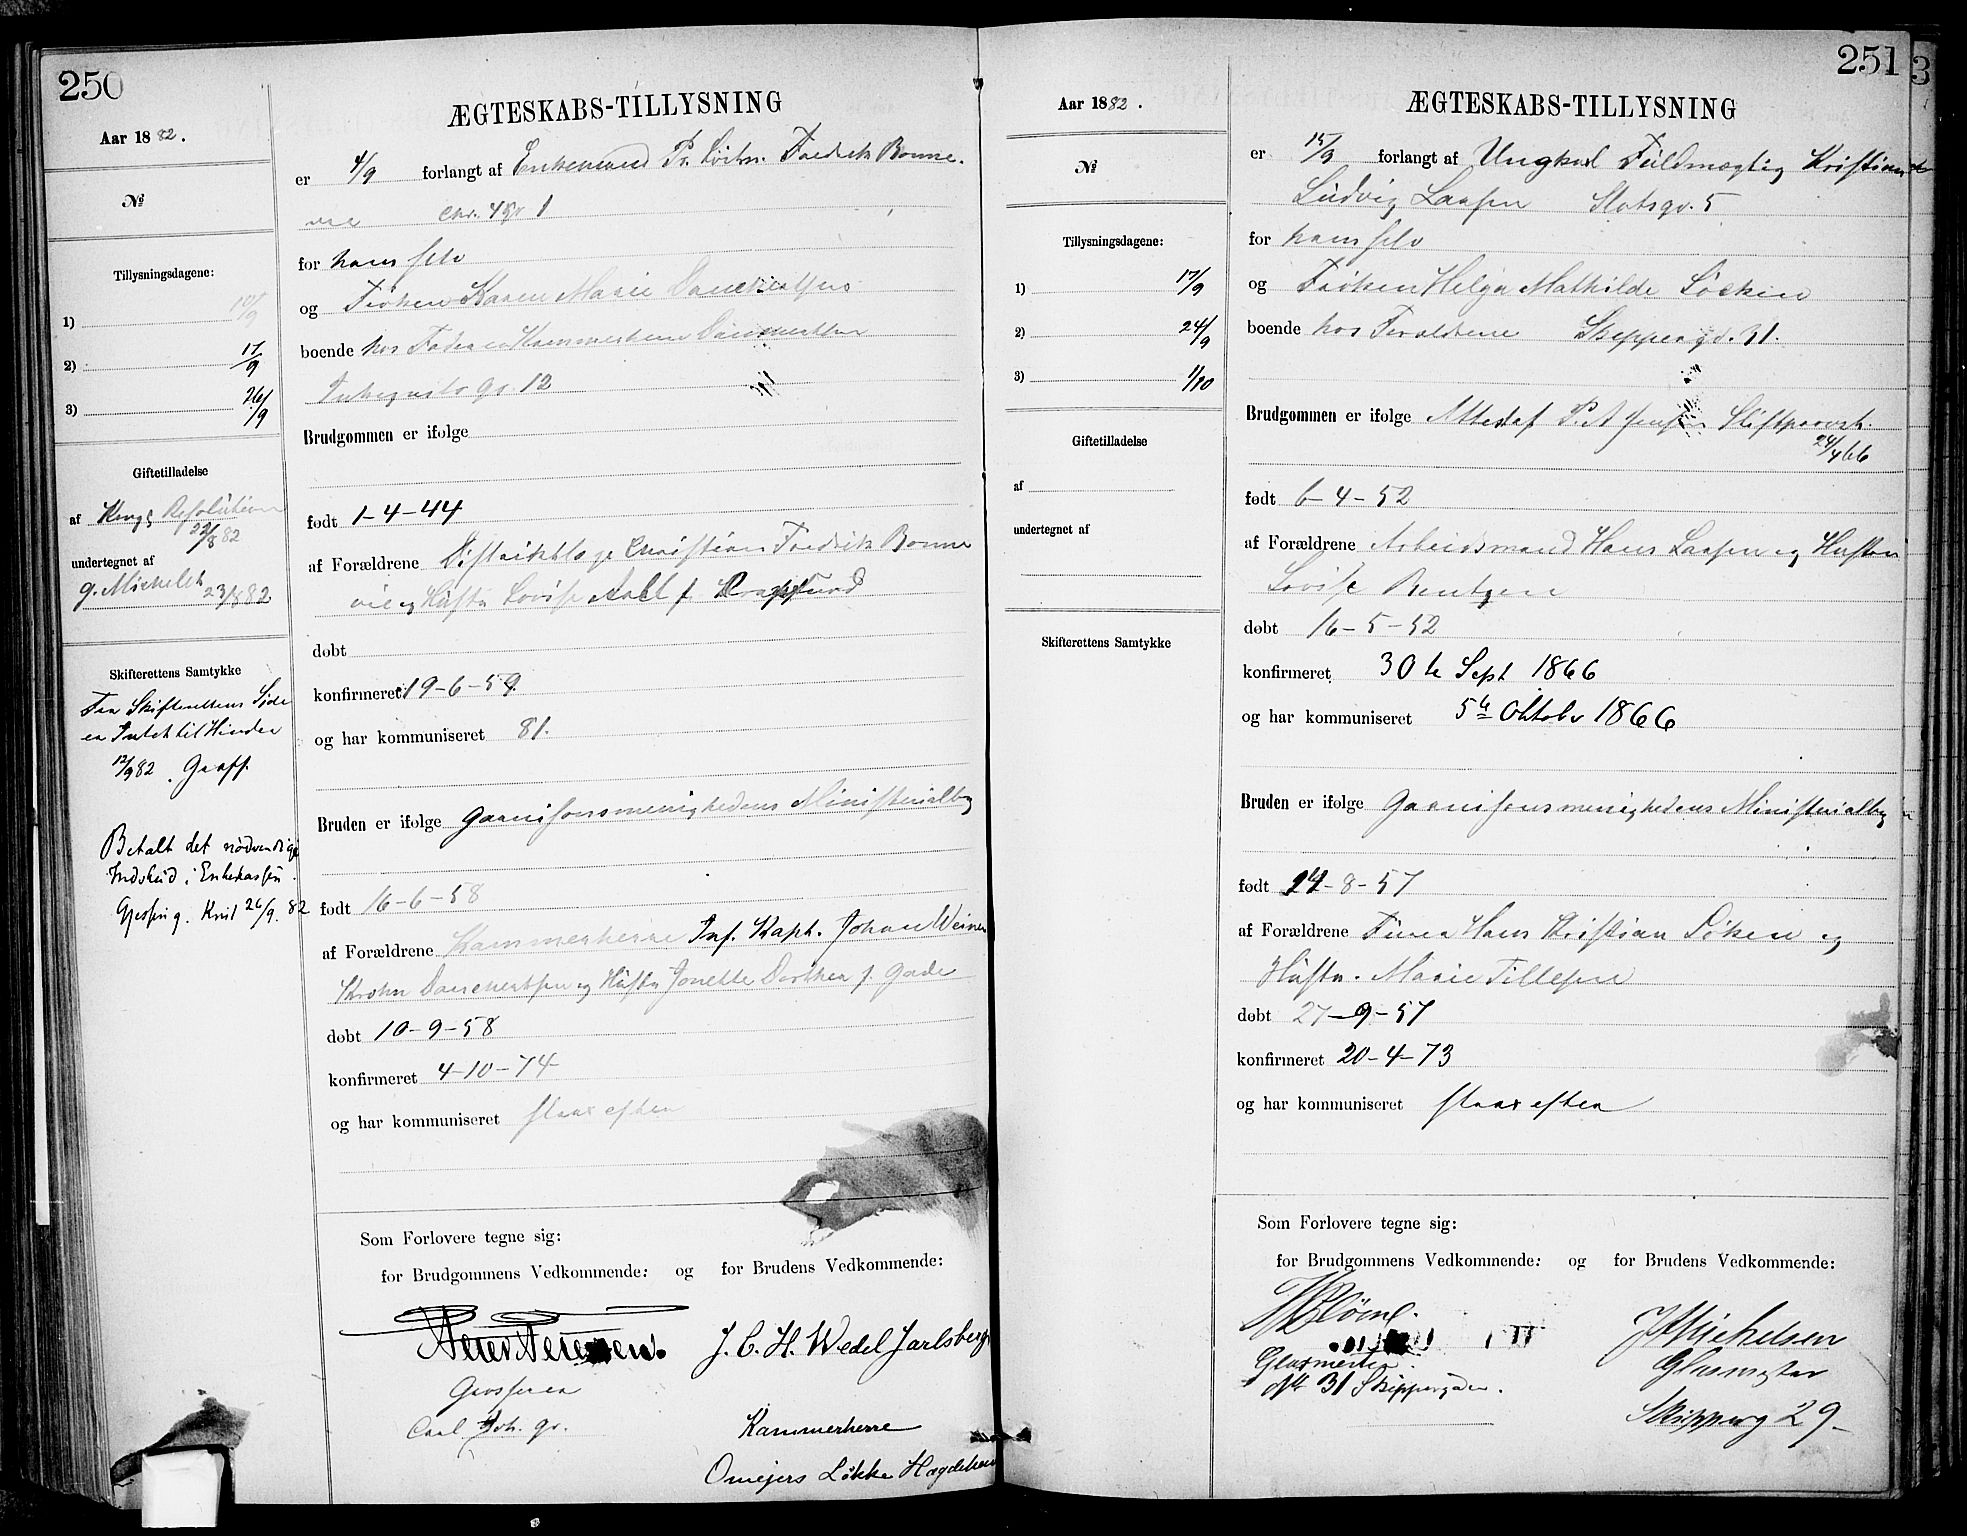 250
Aar 1882.
№
Tillysningsdagene:
1) 10/9
2) 17/9
3) 24/9
Giftetilladelse
af Kongs Resolution
22/8 82
undertegnet af
g. Michelet 23/8 82
Skifterettens Samtykke
Fra Skifterettens Side
er Intet til Hinder
12/9 82.
Betalt det nødvendige
Indskud i Enkekassen.
26/9. 82
ÆGTESKABS-TILLYSNING
er 4/9 forlangt af Enkemand Pr. Løitn. Fredrik Bonne-
vie
for ham selv
og Frøken Karen Marie Danchertsen
boende hos Faderen Kammerherre Danchertsen
gr. 12
Brudgommen er ifølge
født 1-4-44
af Forældrene Distriktslæge Christian Fredrik Bonne
vie og Hustr. Lovise Aall f.
døbt
konfirmeret 19-6-59.
og har kommuniseret 81.
Bruden er ifølge Garnisonsmenighedens Ministerialbog
født 16-6-58
af Forældrene Kammerherre Inf. Kapt. Johan Werner
Krohn Danchertsen og Hustr Jonette Dorthea f. Gade
døbt 10-9-58
konfirmeret 4-10-74
og har kommuniseret strax efter
Som Forlovere tegne sig:
for Brudgommens Vedkommende: og for Brudens Vedkommende:
Peter Petersen. J. C. H. Wedel Jarlsberg
Grosserer
Carl Joh. gr. Kammerherre
Løkke Hægdehaugen
251
Aar 1882.
№
Tillysningsdagene:
1) 17/9
2) 24/9
3) 1/10
Giftetilladelse
af
undertegnet af
Skifterettens Samtykke
ÆGTESKABS-TILLYSNING
er 15/9 forlangt af Ungkarl Fuldmægtig Kristian
Ludvig Larsen Slotsgd. 5
for ham selv
og Frøken Helga Mathilde Löcken
boende hos Forældrene Skippergd. 31.
Brudgommen er ifølge Attest af P. A Jensen Stiftsprovst.
24/4 66
født 6-4-52
af Forældrene Arbeidsmand Hans Larsen og Hustru
Lovise Bentzen
døbt 16-5-52
konfirmeret 30te Sept 1866
og har kommuniseret 5te Oktobr 1866
Bruden er ifølge Garnisonsmenighedens Ministerialbog
født 24-8-57
af Forældrene Furer Hans Kristian Löken og
Hustr. Marie Tillesen
døbt 27-9-57
konfirmeret 20-4-73
og har kommuniseret strax efter
Som Forlovere tegne sig:
for Brudgommens Vedkommende: og for Brudens Vedkommende:
Mickelsen
Glasmester Glasmester
No 31 Skippergaden. Skipperg 29